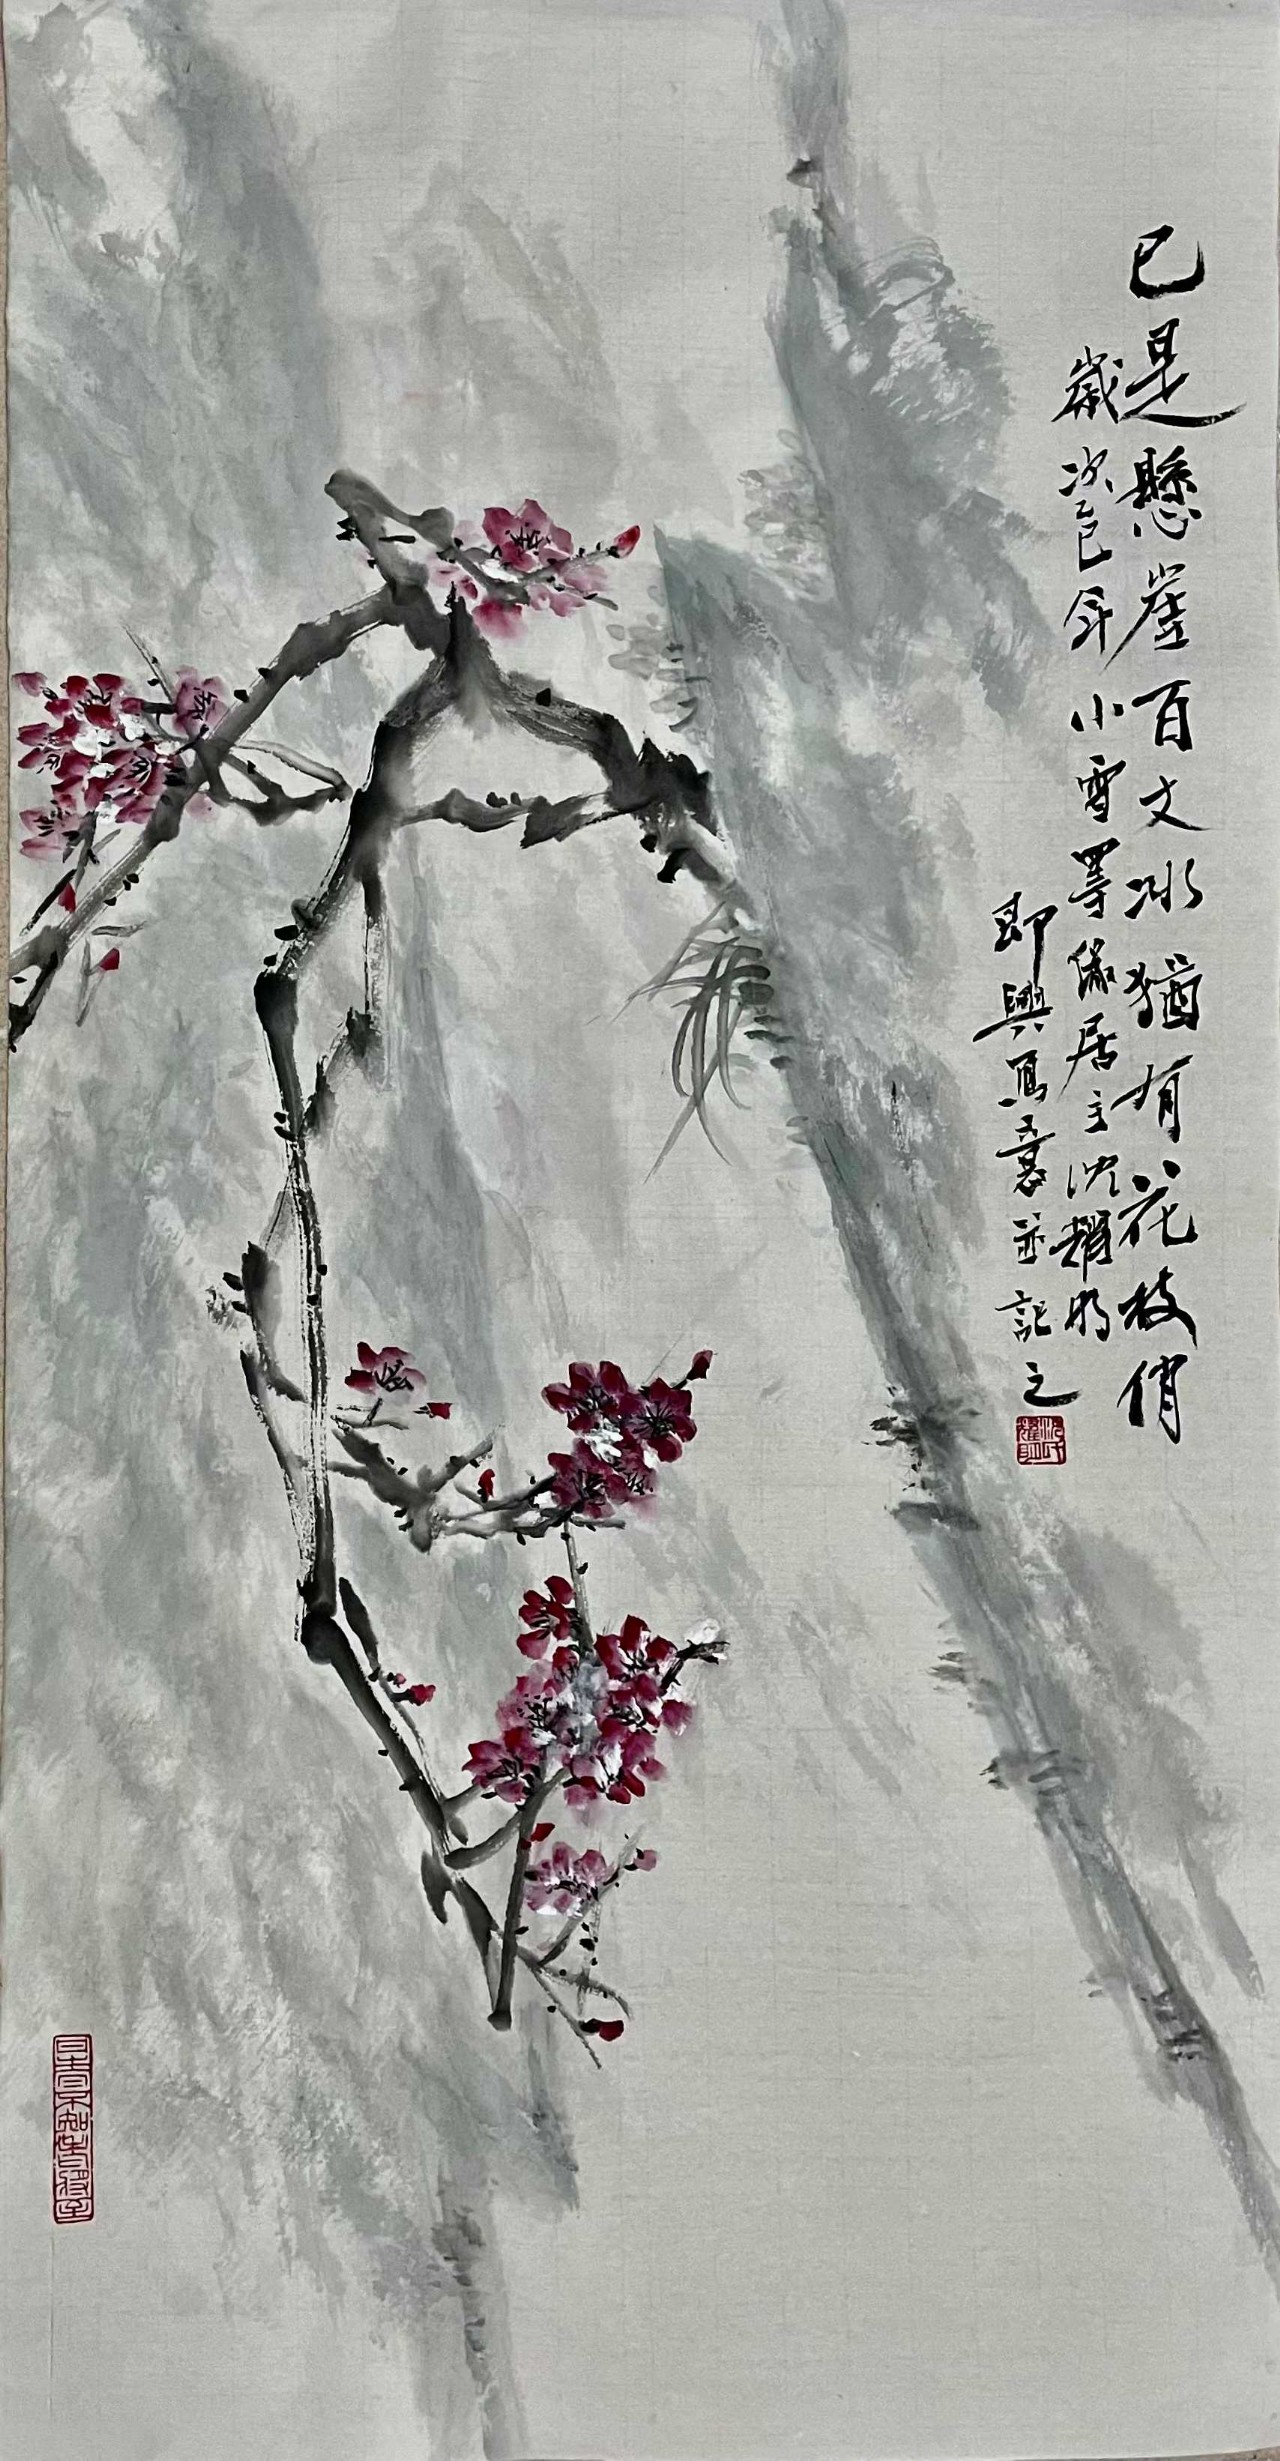 已是懸崖百丈冰猶有花枝俏
歲次乙巳年小雪等傲居主沈耀明
即興寫意並記之